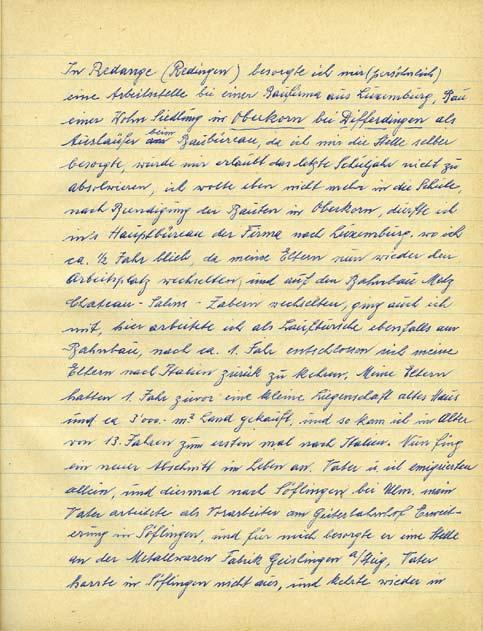 In Redange (Redingen) besorgte ich mir (persönlich)
eine Arbeitsstelle bei einer Baufirma aus Luxemburg, Bau
einer Wohn Siedlung in Oberkorn bei Differdingen als
Ausläufer beim Baubüreau, da ich mir die Stelle selber
besorgte, wurde mir erlaubt das letzte Schuljahr nicht zu
absolvieren, ich wolte eben nicht mehr in die Schule,
nach Beendigung der Bauten in Oberkorn, dürfte ich
in's Hauptbüreau der Firma nach Luxemburg. wo ich
ca. ½ Jahr blieb, da meine Eltern nun wieder den
Arbeitsplatz wechselten, und auf den Bahnbau Metz
Chateau-Salins-Zabern wechselten, ging auch ich
mit, hier arbeitete ich als Laufbursche ebenfalls am
Bahnbau, nach ca. 1. Jahr entschlossen sich meine
Eltern nach Italien zürük zu kehren, Meine Eltern
hatten 1. Jahr zuvor eine kleine Liegenschaft altes Haus
und ca 3'000.- m² Land gekauft, und so kam ich im Alter
von 13. Jahren zum ersten mal nach Italien. Nun fing
ein neuer Abschnitt im Leben an. Vater u. ich emigrierten
allein, und diesmal nach Söflingen bei Ulm. mein
Vater arbeitete als Vorarbeiter am Güterbahnhof Erweit-
erung in Söflingen, und für mich besorgte er eine Stelle
an der Metallwaren Fabrik Geislingen a/Steig, Vater
harrte in Söflingen nicht aus, und kehrte wieder in